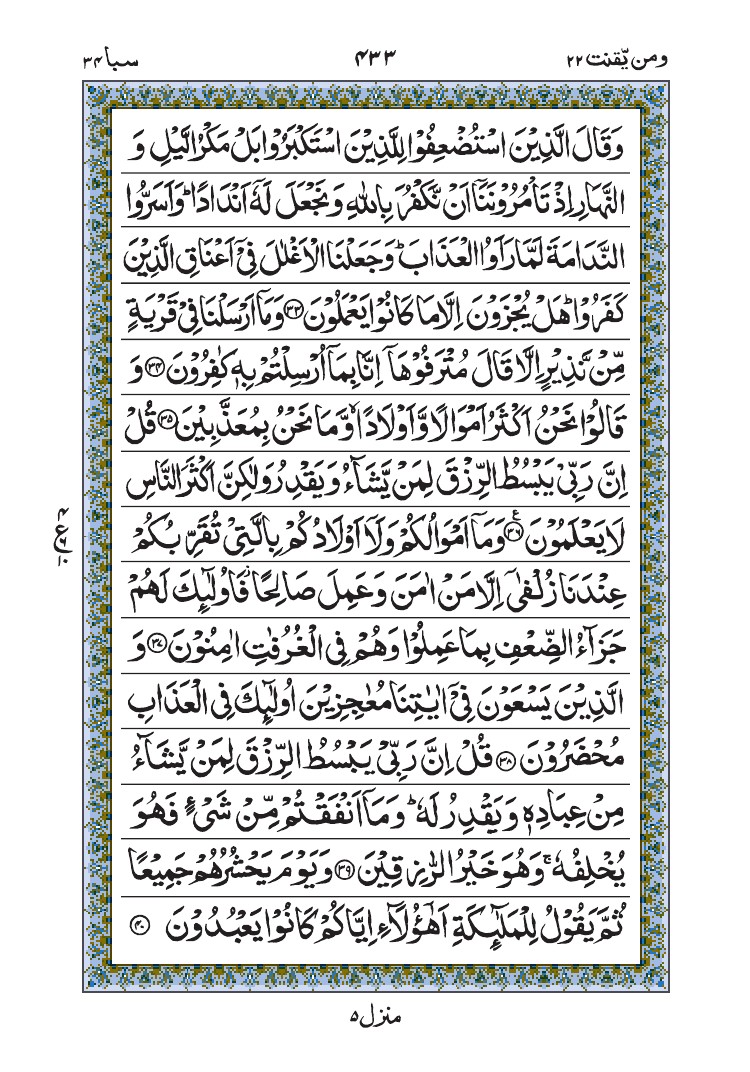 ومن یّقنت ۲۲
۴۳۳
سبا ۳۴
وَقَالَ الَّذِیْنَ اسْتُضْعِفُوْا لِلَّذِیْنَ اسْتَكْبَرُوْا بَلْ مَكْرُ الَّیْلِ وَ
النَّهَارِ اِذْ تَاْمُرُوْنَنَاۤ اَنْ نَّكْفُرَ بِاللّٰهِ وَ نَجْعَلَ لَهٗۤ اَنْدَادًا ؕ وَ اَسَرُّوا
النَّدَامَةَ لَمَّا رَاَوُا الْعَذَابَ ؕ وَ جَعَلْنَا الْاَغْلٰلَ فِیْۤ اَعْنَاقِ الَّذِیْنَ
كَفَرُوْا ؕ هَلْ یُجْزَوْنَ اِلَّا مَا كَانُوْا یَعْمَلُوْنَ ﴿۳۳﴾ وَ مَاۤ اَرْسَلْنَا فِیْ قَرْیَةٍ
مِّنْ نَّذِیْرٍ اِلَّا قَالَ مُتْرَفُوْهَاۤ اِنَّا بِمَاۤ اُرْسِلْتُمْ بِهٖ كٰفِرُوْنَ ﴿۳۴﴾ وَ
قَالُوْا نَحْنُ اَكْثَرُ اَمْوَالًا وَّ اَوْلَادًا ۙ وَّ مَا نَحْنُ بِمُعَذَّبِیْنَ ﴿۳۵﴾ قُلْ
اِنَّ رَبِّیْ یَبْسُطُ الرِّزْقَ لِمَنْ یَّشَآءُ وَ یَقْدِرُ وَ لٰكِنَّ اَكْثَرَ النَّاسِ
لَا یَعْلَمُوْنَ ﴿۳۶﴾ ع وَ مَاۤ اَمْوَالُكُمْ وَ لَاۤ اَوْلَادُكُمْ بِالَّتِیْ تُقَرِّبُكُمْ
عِنْدَنَا زُلْفٰۤی اِلَّا مَنْ اٰمَنَ وَ عَمِلَ صَالِحًا ؗ فَاُولٰٓىِٕكَ لَهُمْ
جَزَآءُ الضِّعْفِ بِمَا عَمِلُوْا وَ هُمْ فِی الْغُرُفٰتِ اٰمِنُوْنَ ﴿۳۷﴾ وَ
الَّذِیْنَ یَسْعَوْنَ فِیْۤ اٰیٰتِنَا مُعٰجِزِیْنَ اُولٰٓىِٕكَ فِی الْعَذَابِ
مُحْضَرُوْنَ ﴿۳۸﴾ قُلْ اِنَّ رَبِّیْ یَبْسُطُ الرِّزْقَ لِمَنْ یَّشَآءُ
مِنْ عِبَادِهٖ وَ یَقْدِرُ لَهٗ ؕ وَ مَاۤ اَنْفَقْتُمْ مِّنْ شَیْءٍ فَهُوَ
یُخْلِفُهٗ ۚ وَ هُوَ خَیْرُ الرّٰزِقِیْنَ ﴿۳۹﴾ وَ یَوْمَ یَحْشُرُهُمْ جَمِیْعًا
ثُمَّ یَقُوْلُ لِلْمَلٰٓىِٕكَةِ اَهٰۤؤُلَآءِ اِیَّاكُمْ كَانُوْا یَعْبُدُوْنَ ﴿۴۰﴾
۴
ع
۱۰
منزل ۵